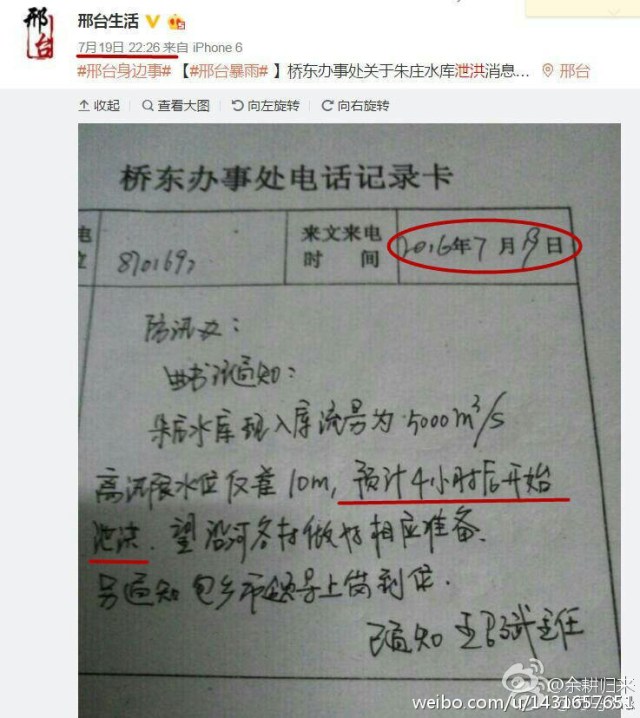 邢台
邢台生活
7月19日 22:26 来自 iPhone 6
#邢台身边事# 【#邢台暴雨# 】桥东办事处关于朱庄水库泄洪消息... 邢台
收起 查看大图 向左旋转 向右旋转
桥东办事处电话记录卡
电 870169 来文来电 2016年7月19日
时 间
防汛办:
曲书记通知:
朱庄水库现入库流量为5000m³/s
高汛限水位仅差10m,预计4小时后开始
泄洪.望沿河各村做好相应准备.
另通知包乡市领导上岗到位.
已通知 王 斌主任
@余耕归来
weibo.com/u/1431657651